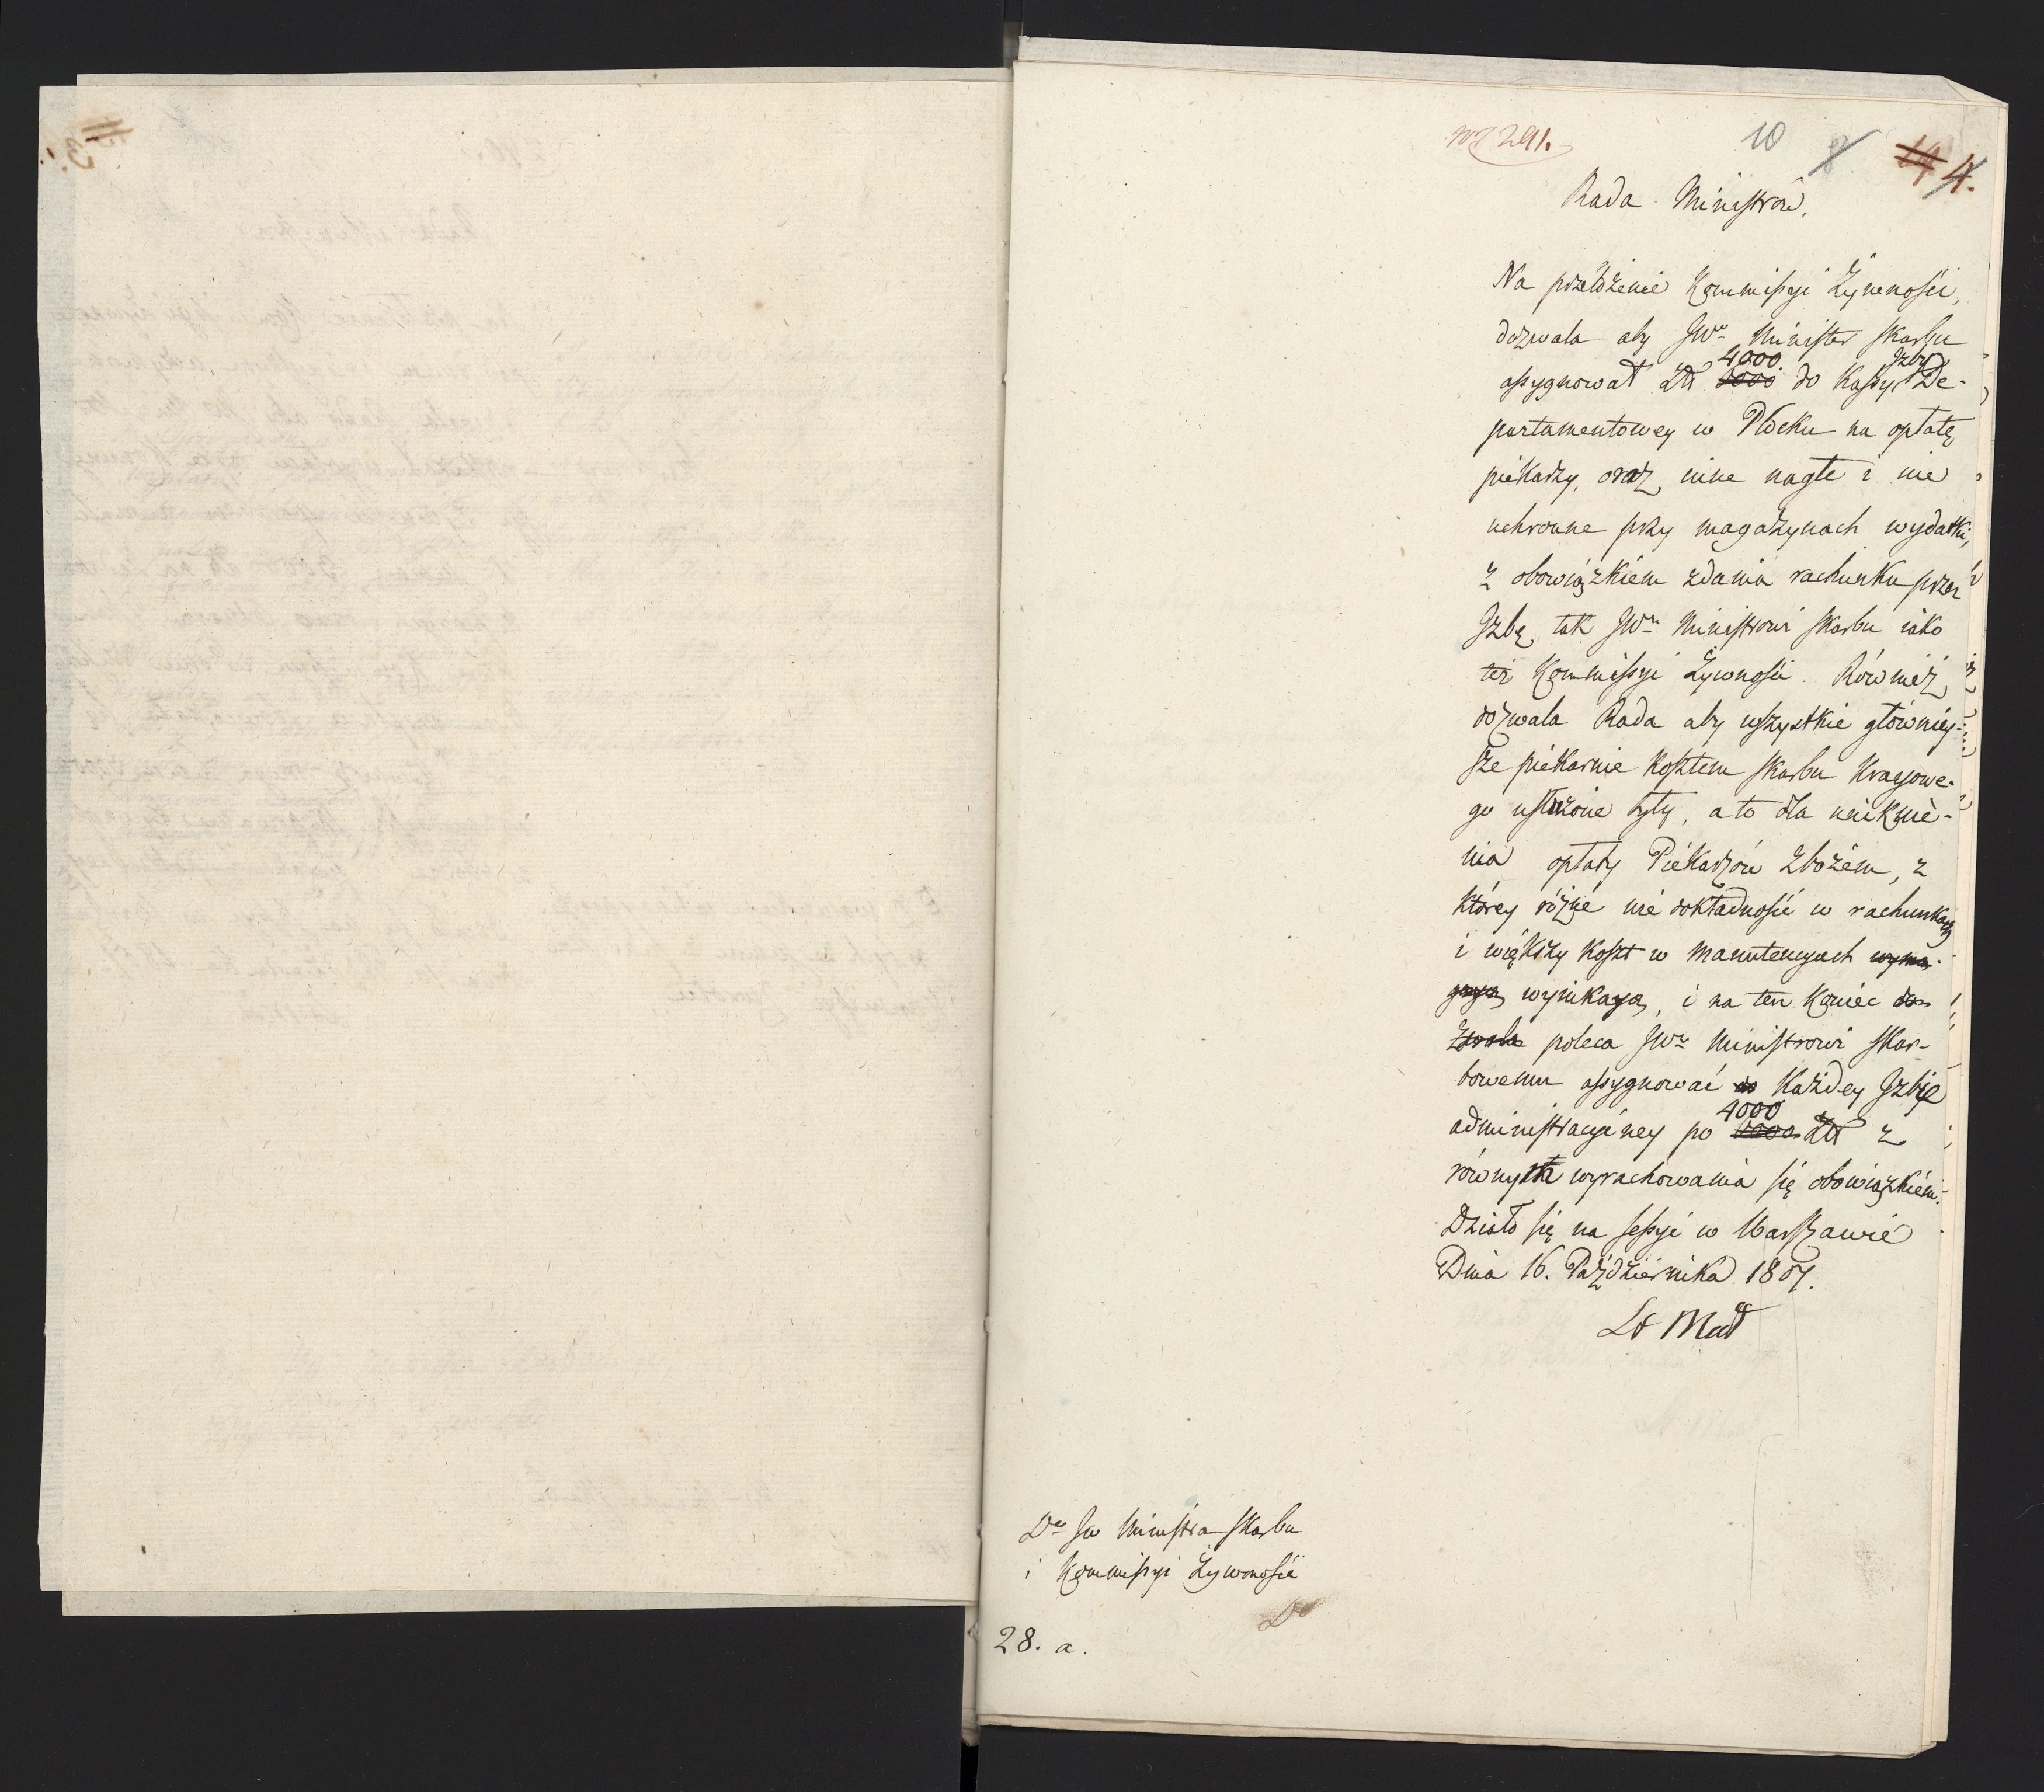 N 291.
10 8 14 4.
Rada Ministrów.
Na przełożenie Kommissyi Żywności,
dozwala aby JWn Minister Skarbu
assygnował Złł 4000 do Kassy Izby De-
partamentowey w Płocku na opłatę
piekarzy, oraz inne nagłe i nie
uchronne przy magazynach wydatki,
z obowiązkiem zdania rachunku przez
Izbę tak JWu Ministrowi Skarbu iako
też Kommissyi Żywności. Również
dozwala Rada aby wszystkie główniey-
sze piekarnie kosztem Skarbu Kraiowe-
go ustawione były, a to dla uniknie-
nia opłaty Piekarzów zbożem, z
którey różne nie dokładności w rachunkach
i większy koszt w manutencyach wyma-
gaią wynikaią, i na ten koniec do-
zwala poleca JWu Ministrowi Skar-
bowemu assygnować do każdey Izbie
administracyiney po 4000 Złł z
równym wyrachowania się obowiązkiem.
Działo się na Sessyi w Warszawie
Dnia 16. Października 1807.
Do JW Ministra Skarbu
i Kommissyi Żywności
28. a.